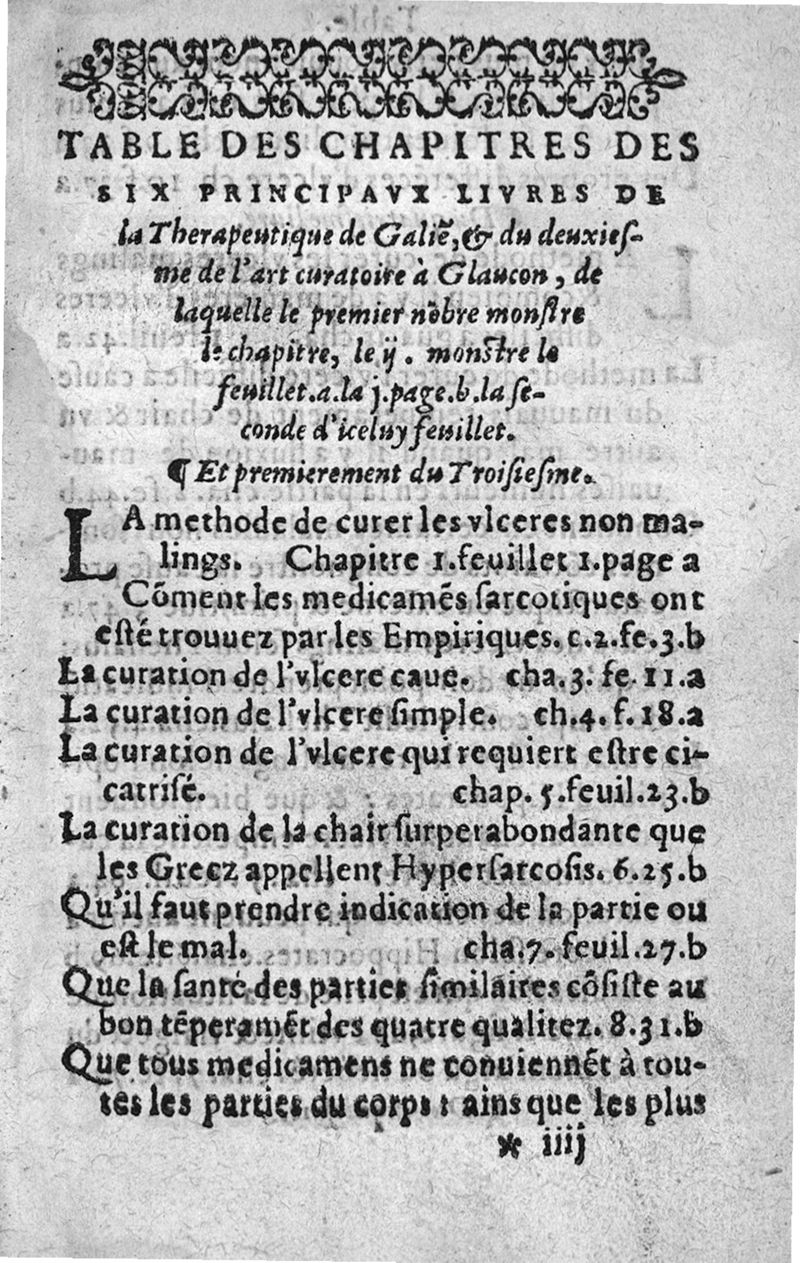 TABLE DES CHAPITRES DES
SIX PRINCIPAVX LIVRES DE
la Therapeutique de Galiẽ, & du deuxieſ-
me de l'art curatoire à Glaucon, de
laquelle le premier nõbre monſtre
le chapitre, le ij. monſtre le
feuillet.a.la j.page.b.la ſe-
conde d'iceluy feuillet.
¶ Et premierement du Troiſieſme.
LA methode de curer les vlceres non ma-
lings. Chapitre 1.feuillet 1.page a
Cõment les medicamẽs ſarcotiques ont
eſté trouuez par les Empiriques. c.2.fe.3.b
La curation de l'vlcere caue. cha.3. fe.11.a
La curation de l'vlcere ſimple. ch.4. f.18.a
La curation de l'vlcere qui requiert eſtre ci-
catriſé. chap. 5.feuil.23.b
La curation de la chair ſurperabondante que
les Grecz appellent Hyperſarcoſis. 6.25.b
Qu'il faut prendre indication de la partie ou
eſt le mal. cha.7. feuil.27.b
Que la ſanté des parties ſimilaires cõſiſte au
bon tẽperamẽt des quatre qualitez. 8.31.b
Que tous medicamens ne conuiennẽt à tou-
tes les parties du corps : ains que les plus
* iiij